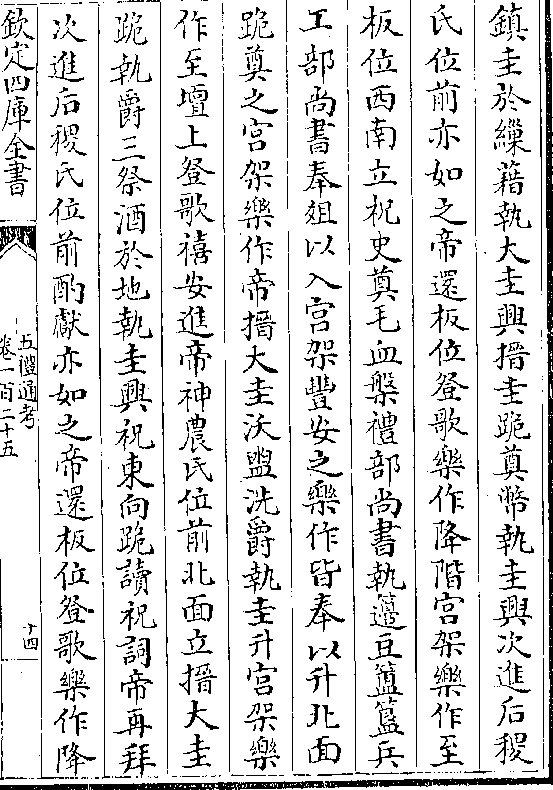 鎮圭於繅藉執大圭興搢圭跪奠幣執圭興次進后稷
氏位前亦如之帝還板位登歌樂作降階宫架樂作至
板位西南立祝史奠毛血槃禮部尚書執籩豆簠簋兵
工部尚書奉俎以入宫架豐安之樂作皆奉以升北面
跪奠之宫架樂作帝搢大圭沃盥洗爵執圭升宫架樂
作至壇上登歌禧安進帝神農氏位前北面立搢大圭
跪執爵三祭酒於地執圭興祝東向跪讀祝詞帝再拜
次進后稷氏位前酌獻亦如之帝還板位登歌樂作降
欽定四庫全書
五禮通考
卷一百二十五
十四